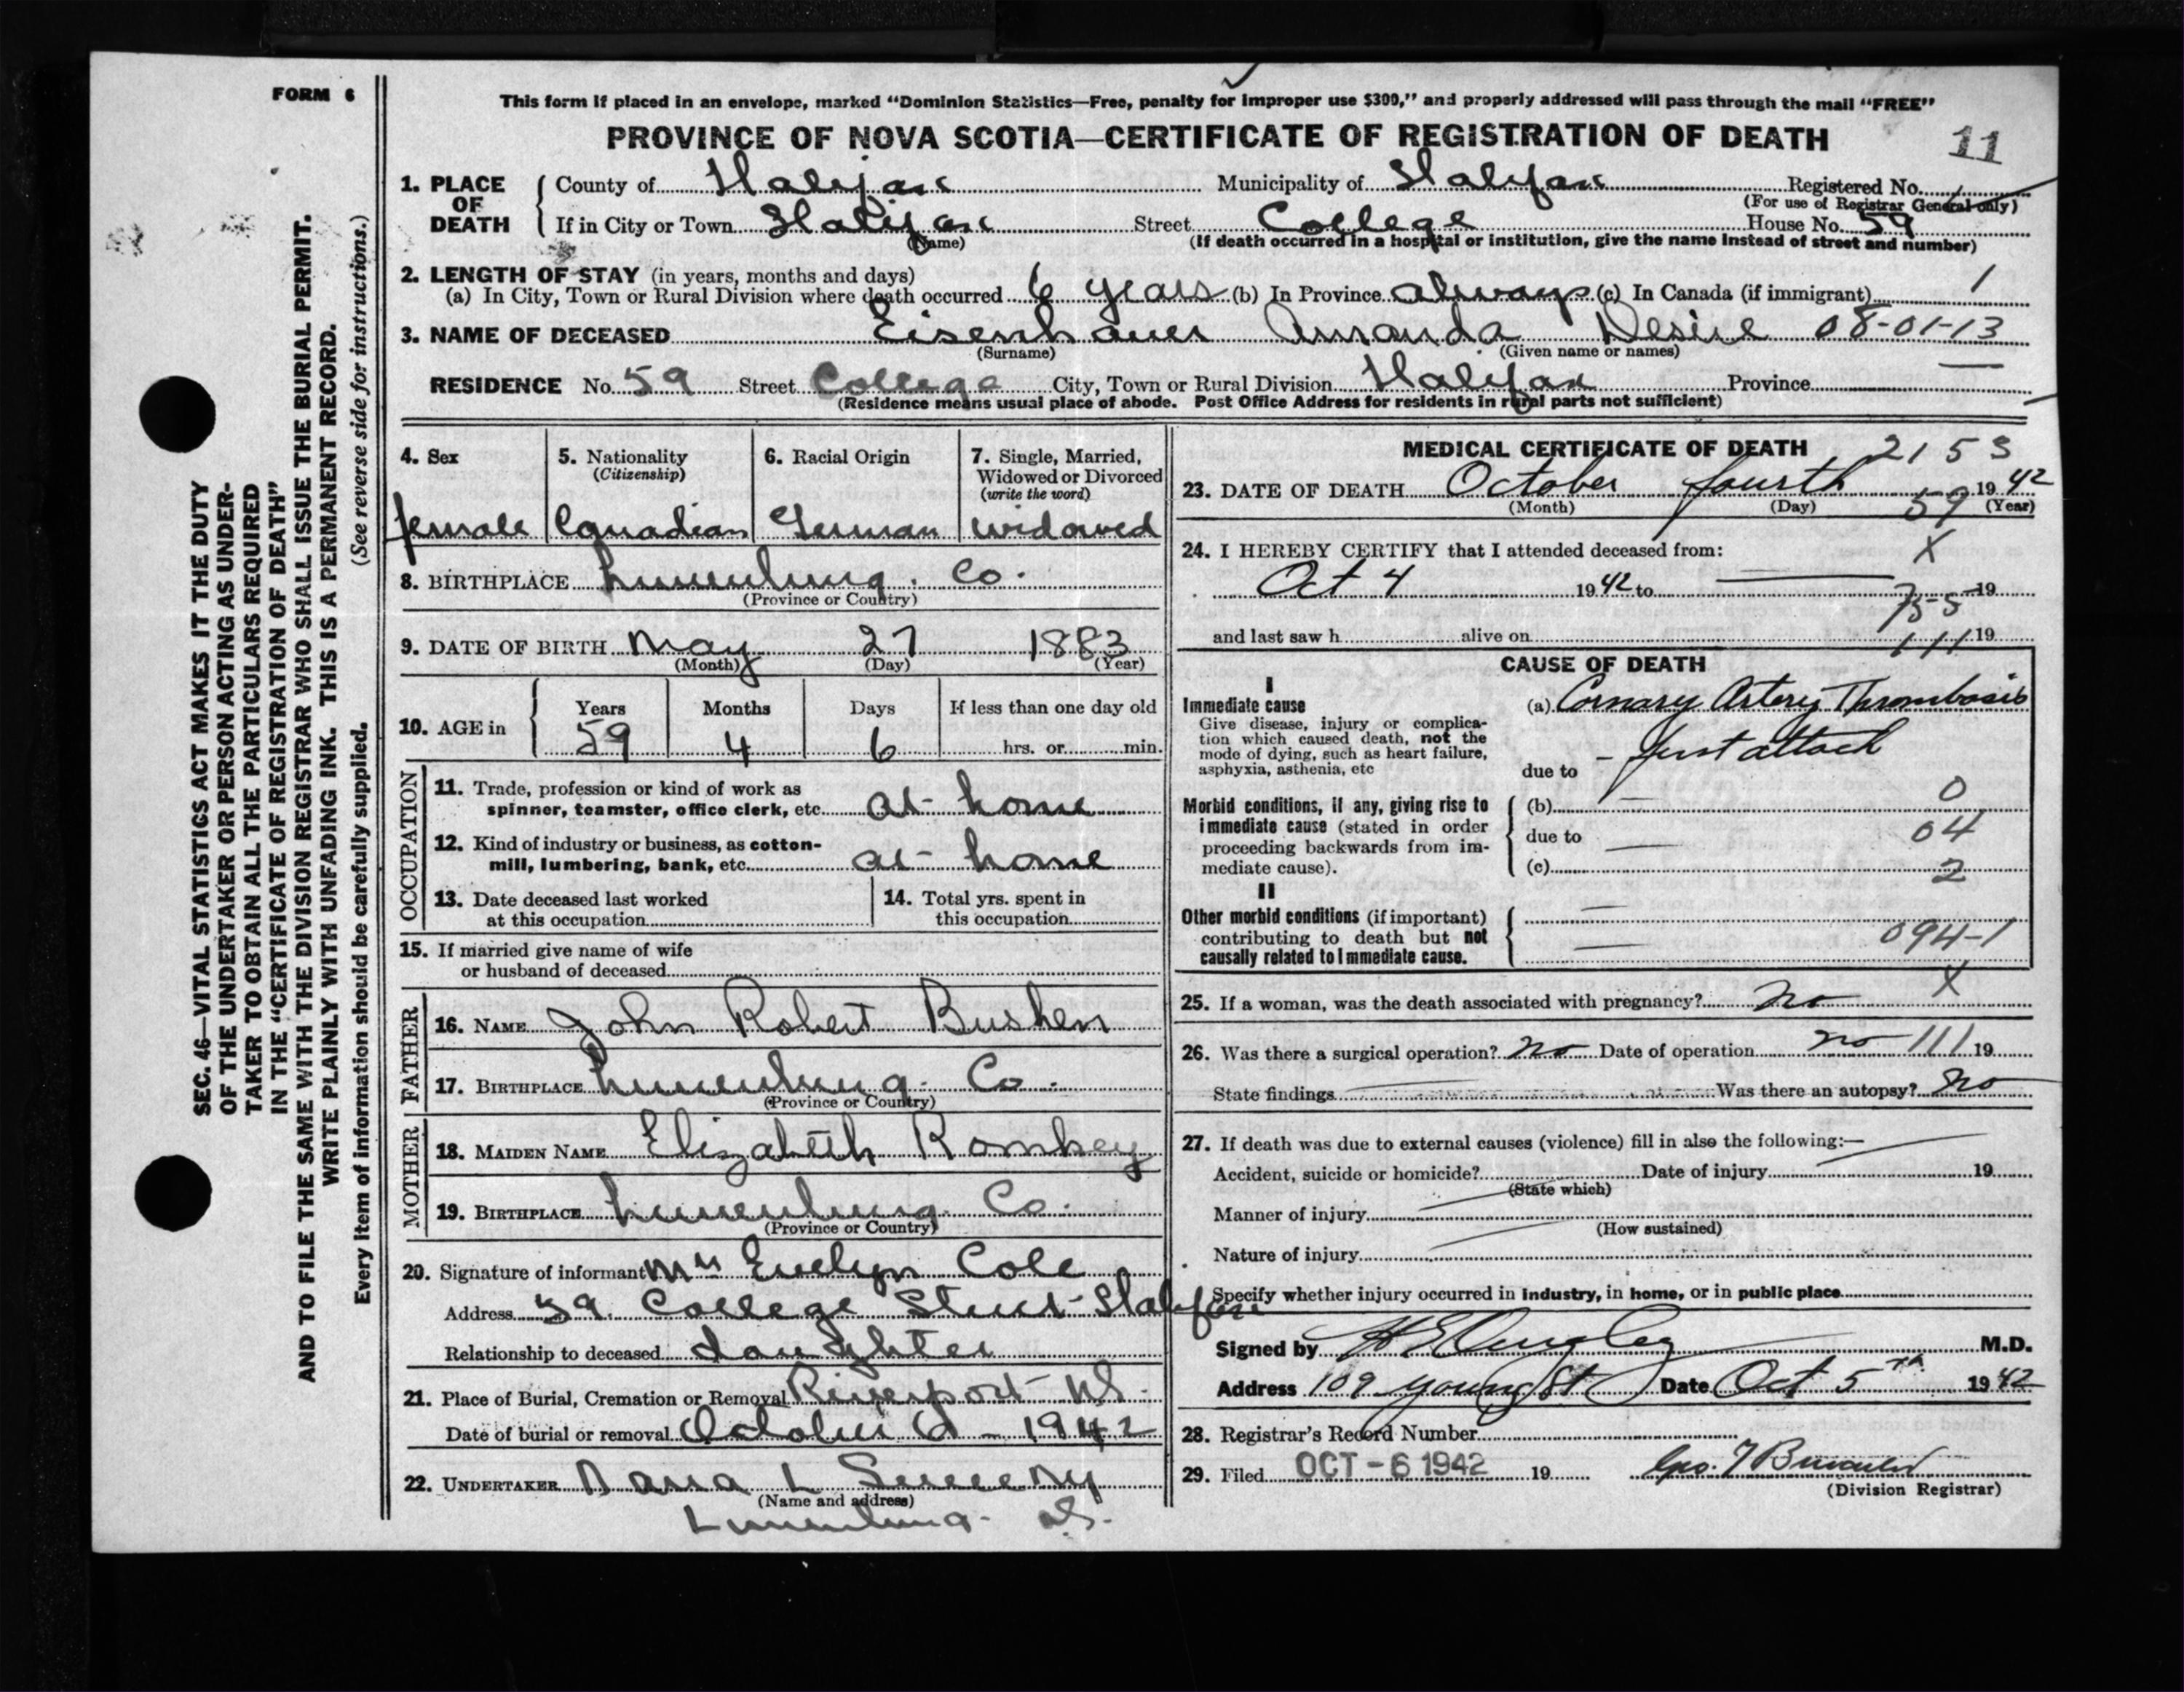 FORM 6
This form if placed in an envelope, marked "Dominion Statistics—Free, penalty for improper use $300," and properly addressed will pass through the mail "FREE"
PROVINCE OF NOVA SCOTIA—CERTIFICATE OF REGISTRATION OF DEATH
11
1. PLACE OF DEATH
County of Halifax Municipality of Halifax Registered No.
(For use of Registrar General only)
If in City or Town Halifax Street College House No. 59
(Name) (If death occurred in a hospital or institution, give the name instead of street and number)
2. LENGTH OF STAY (in years, months and days)
(a) In City, Town or Rural Division where death occurred 6 years (b) In Province always (c) In Canada (if immigrant) 1
3. NAME OF DECEASED Eisenhauer Amanda Desire 08-01-13
(Surname) (Given name or names)
RESIDENCE No. 59 Street College City, Town or Rural Division Halifax Province
(Residence means usual place of abode. Post Office Address for residents in rural parts not sufficient)
SEC. 46—VITAL STATISTICS ACT MAKES IT THE DUTY
OF THE UNDERTAKER OR PERSON ACTING AS UNDER-
TAKER TO OBTAIN ALL THE PARTICULARS REQUIRED
IN THE "CERTIFICATE OF REGISTRATION OF DEATH"
AND TO FILE THE SAME WITH THE DIVISION REGISTRAR WHO SHALL ISSUE THE BURIAL PERMIT.
WRITE PLAINLY WITH UNFADING INK. THIS IS A PERMANENT RECORD.
Every item of information should be carefully supplied. (See reverse side for instructions.)
4. Sex
female
5. Nationality
(Citizenship)
Canadian
6. Racial Origin
German
7. Single, Married,
Widowed or Divorced
(write the word)
widowed
8. BIRTHPLACE Lunenburg. Co.
(Province or Country)
9. DATE OF BIRTH May 27 1883
(Month) (Day) (Year)
10. AGE in
Years Months Days If less than one day old
59 4 6 hrs. or min.
OCCUPATION
11. Trade, profession or kind of work as
spinner, teamster, office clerk, etc. at home
12. Kind of industry or business, as cotton-
mill, lumbering, bank, etc. at home
13. Date deceased last worked
at this occupation
14. Total yrs. spent in
this occupation
15. If married give name of wife
or husband of deceased
FATHER
16. NAME John Robert Bushen
17. BIRTHPLACE Lunenburg. Co.
(Province or Country)
MOTHER
18. MAIDEN NAME Elizabeth Romkey
19. BIRTHPLACE Lunenburg. Co.
(Province or Country)
20. Signature of informant Mrs Evelyn Cole
Address 59. College Street Halifax
Relationship to deceased daughter
21. Place of Burial, Cremation or Removal Riverport NS.
Date of burial or removal October 6 - 1942
22. UNDERTAKER L Sweeny
(Name and address)
Lunenburg. NS.
MEDICAL CERTIFICATE OF DEATH 2153
23. DATE OF DEATH October fourth 1942
(Month) (Day) (Year)
59
24. I HEREBY CERTIFY that I attended deceased from: X
Oct 4 1942 to 19
755
and last saw h alive on 19
111
CAUSE OF DEATH
I
Immediate cause
Give disease, injury or complica-
tion which caused death, not the
mode of dying, such as heart failure,
asphyxia, asthenia, etc
(a) Coronary Artery Thrombosis
- first attack
due to
Morbid conditions, if any, giving rise to
immediate cause (stated in order
proceeding backwards from im-
mediate cause).
(b) 0
due to 04
(c) 2
II
Other morbid conditions (if important)
contributing to death but not
causally related to immediate cause.
094-1
25. If a woman, was the death associated with pregnancy? No X
26. Was there a surgical operation? No Date of operation no 111 19
State findings Was there an autopsy? No
27. If death was due to external causes (violence) fill in also the following:—
Accident, suicide or homicide? Date of injury 19
(State which)
Manner of injury
(How sustained)
Nature of injury
Specify whether injury occurred in industry, in home, or in public place
Signed by M.D.
Address 109 Young St Date Oct 5th 1942
28. Registrar's Record Number
29. Filed OCT - 6 1942 19
(Division Registrar)